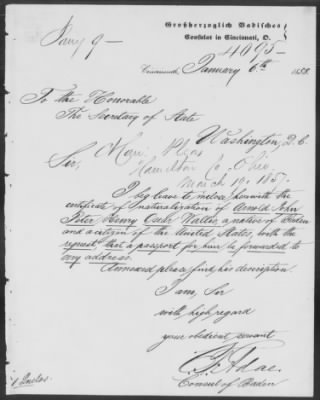 Großherzoglich Badisches
Consulat in Cincinnati, O.
Jany 9 —
4095 —
Cincinnati, January 6th 1858
To the Honorable
The Secretary of State
Washington, D.C.
Sir,
Hamilton Co. Ohio
March 19. 1857.
I beg leave to inclose herewith the
certificate of naturalization of Arnold John
Peter Henry Walter, a native of Baden
and a citizen of the United States, with the
request, that a passport for him be forwarded to
my address.
Annexed please find his description.
I am, Sir
with high regard
your obedient servant
C. F. Adae.
Consul of Baden